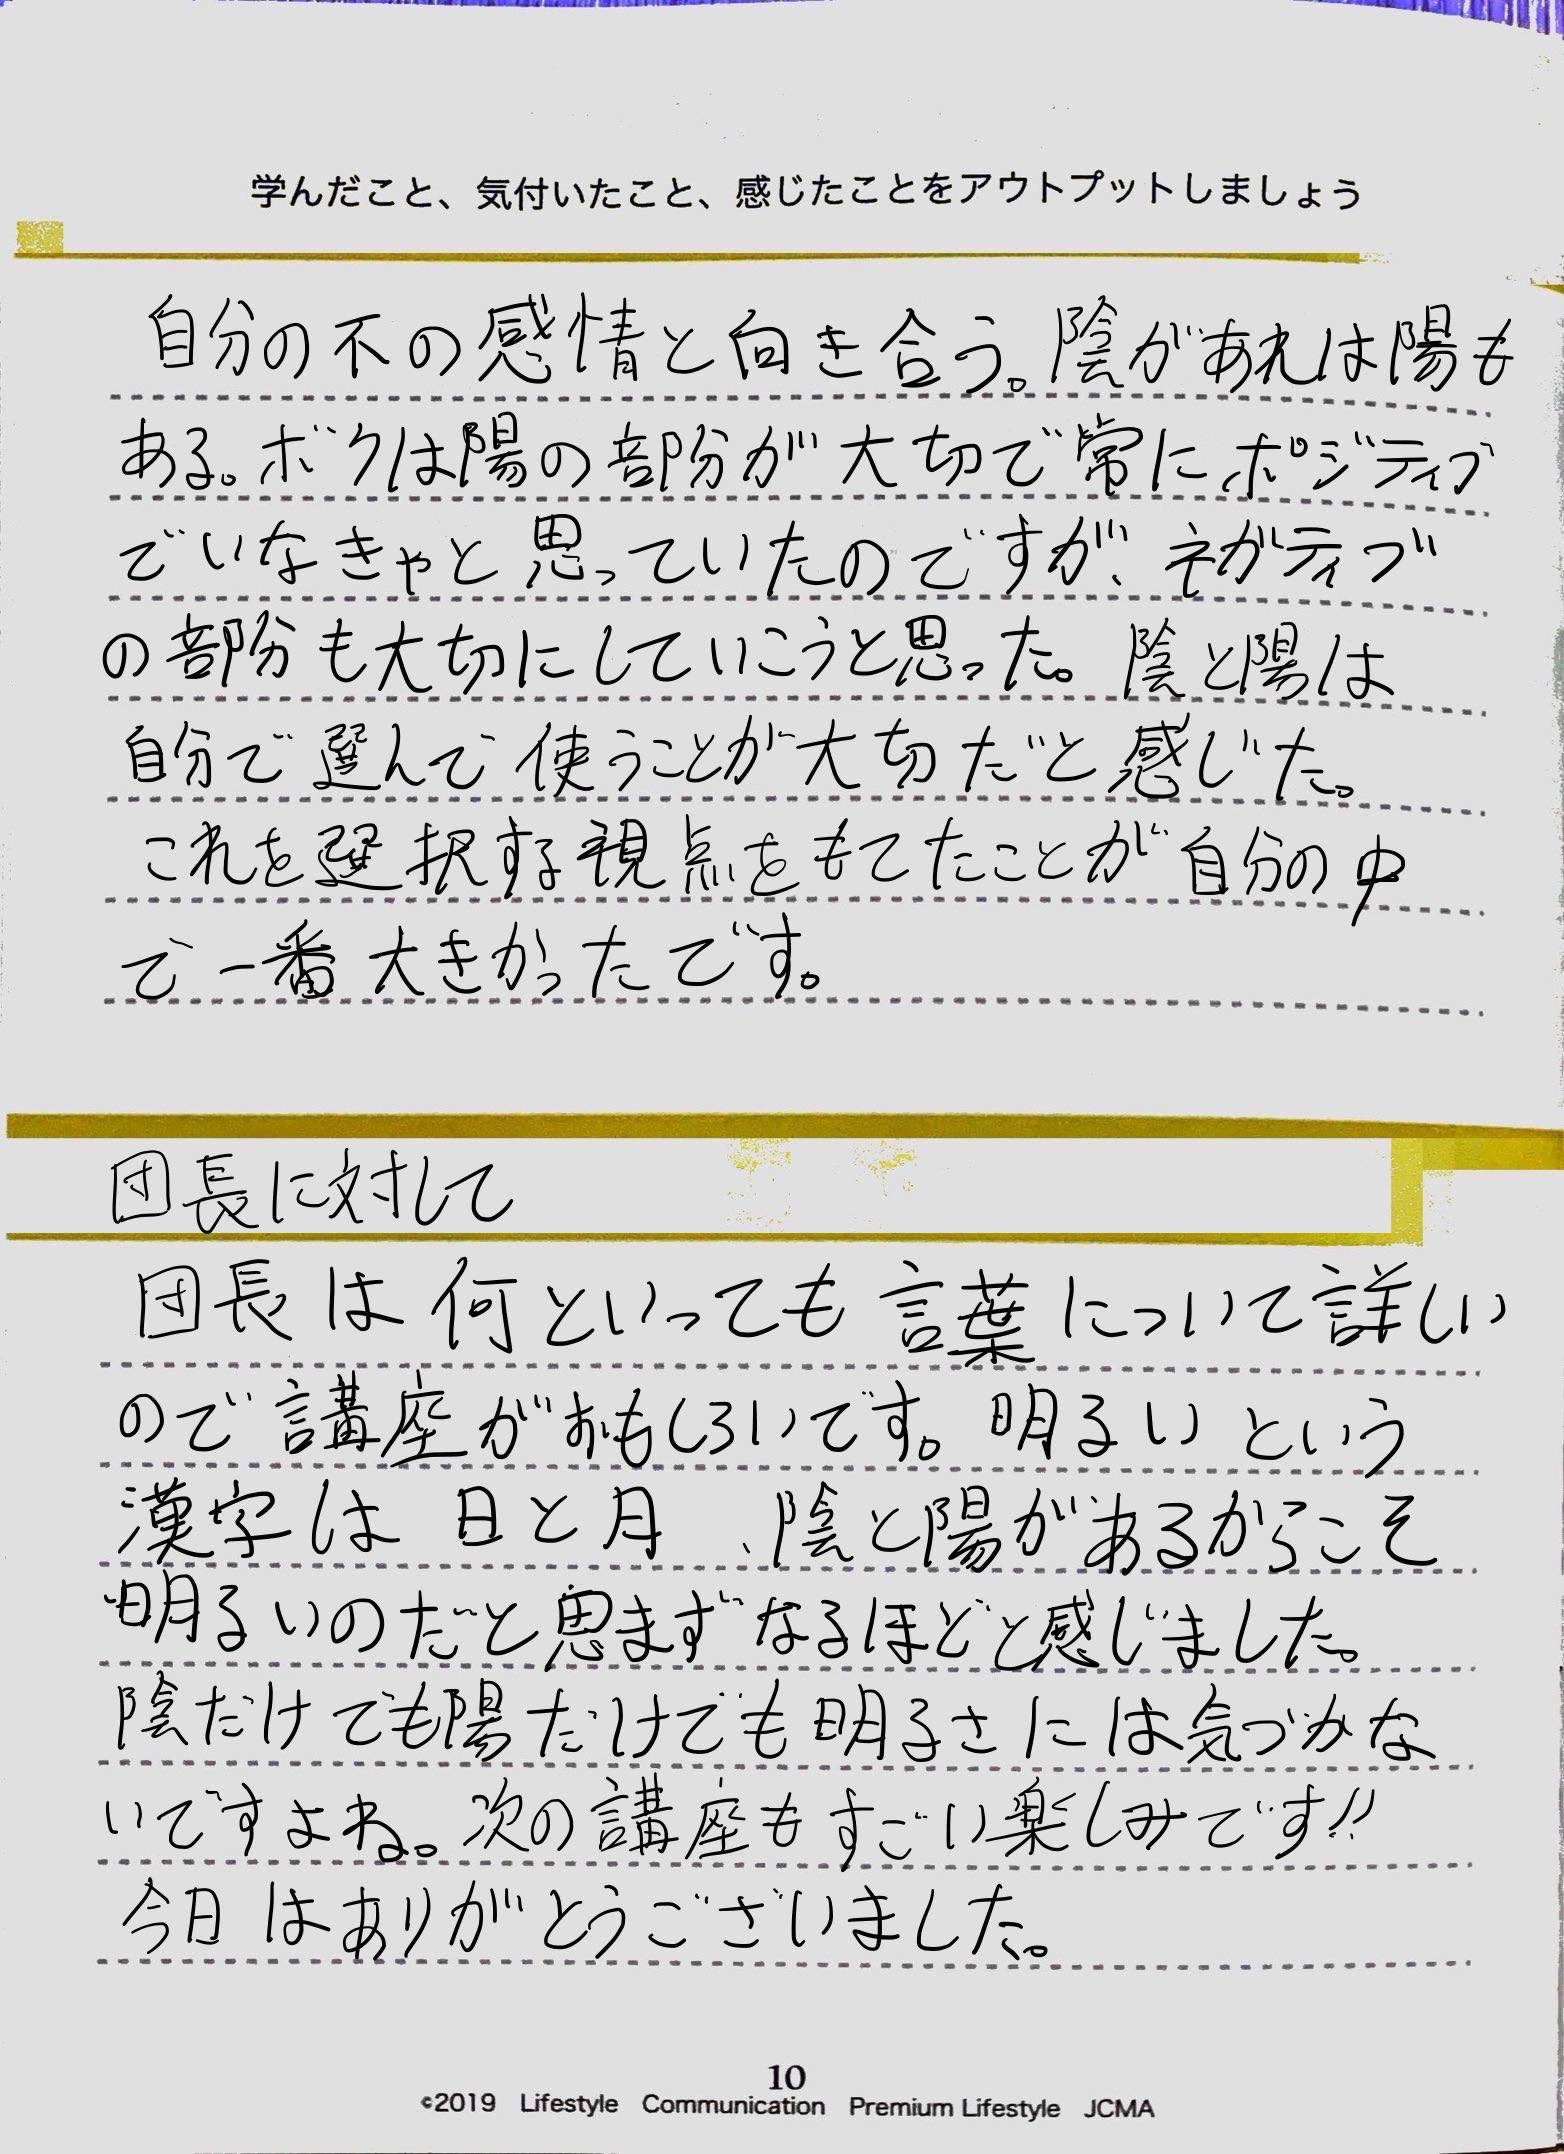 学んだこと、気付いたこと、感じたことをアウトプットしましょう
自分の不の感情と向き合う。陰があれは陽も
ある。ボクは陽の部分が大切で常にポジティブ
でいなきゃと思っていたのですが、ネガティブ
の部分も大切にしていこうと思った。陰と陽は
自分で選んで使うことが大切だと感じた。
これを選択する視点をもてたことが自分の中
で一番大きかったです。
団長に対して
団長は何といっても言葉について詳しい
ので講座がおもしろいです。明るいという
漢字は日と月、陰と陽があるからこそ
明るいのだと思まずなるほどと感じました。
陰だけでも陽だけでも明るさには気づかな
いですよね。次の講座もすごい楽しみです!!
今日はありがとうございました。
10
©2019 Lifestyle Communication Premium Lifestyle JCMA